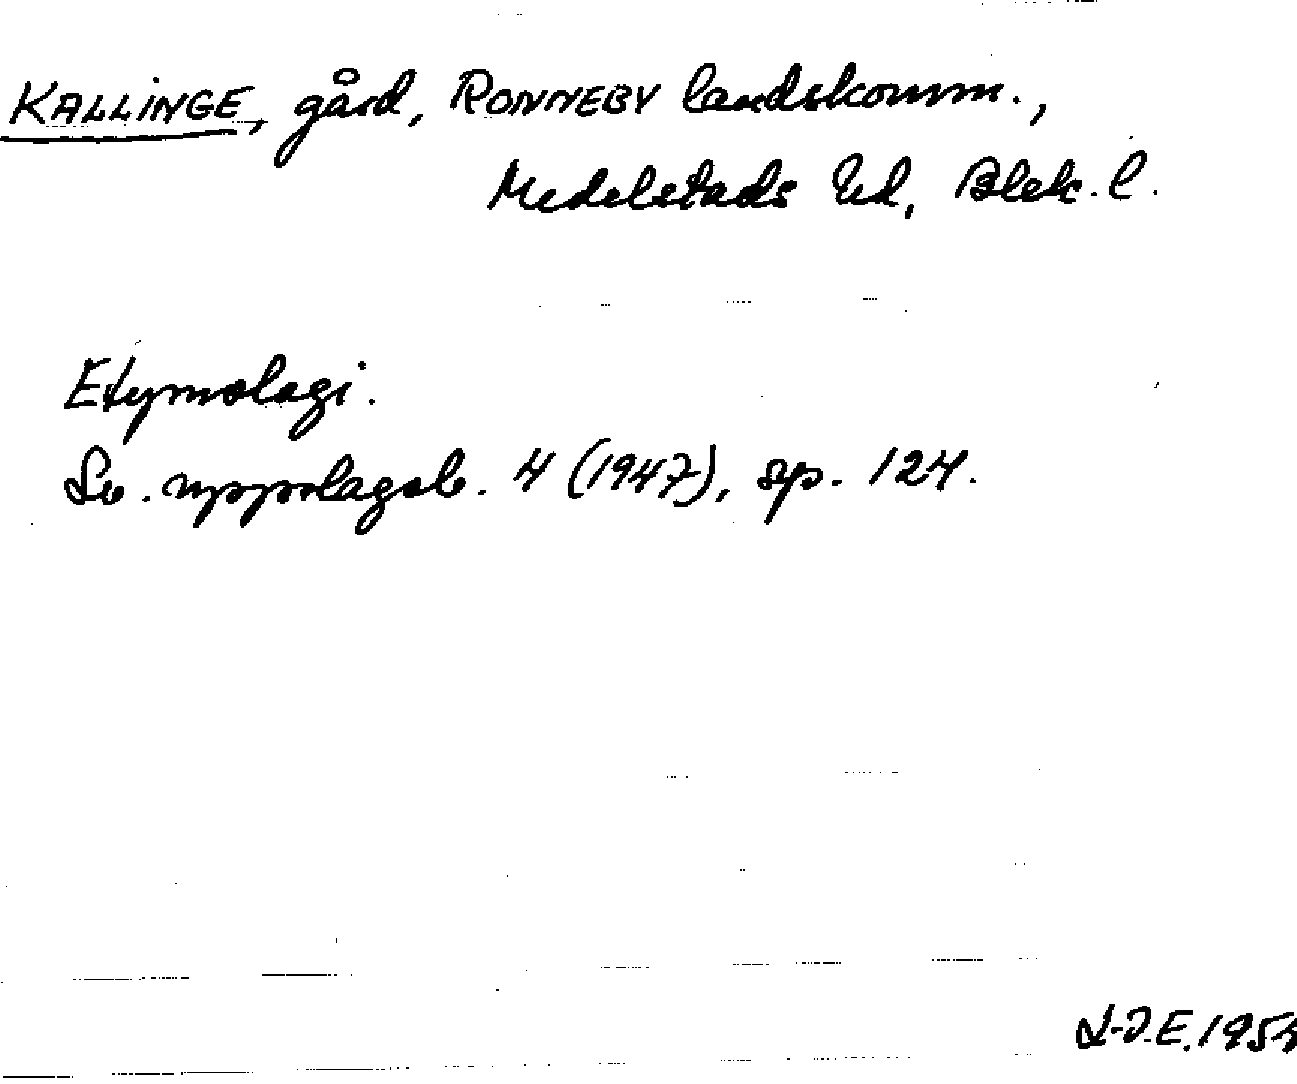 KALLINGE, gård, RONNEBY landskomm.,
Medelstads hd, Blek. l.
Etymologi.
Sv. uppslagsb. 4 (1947), sp. 124.